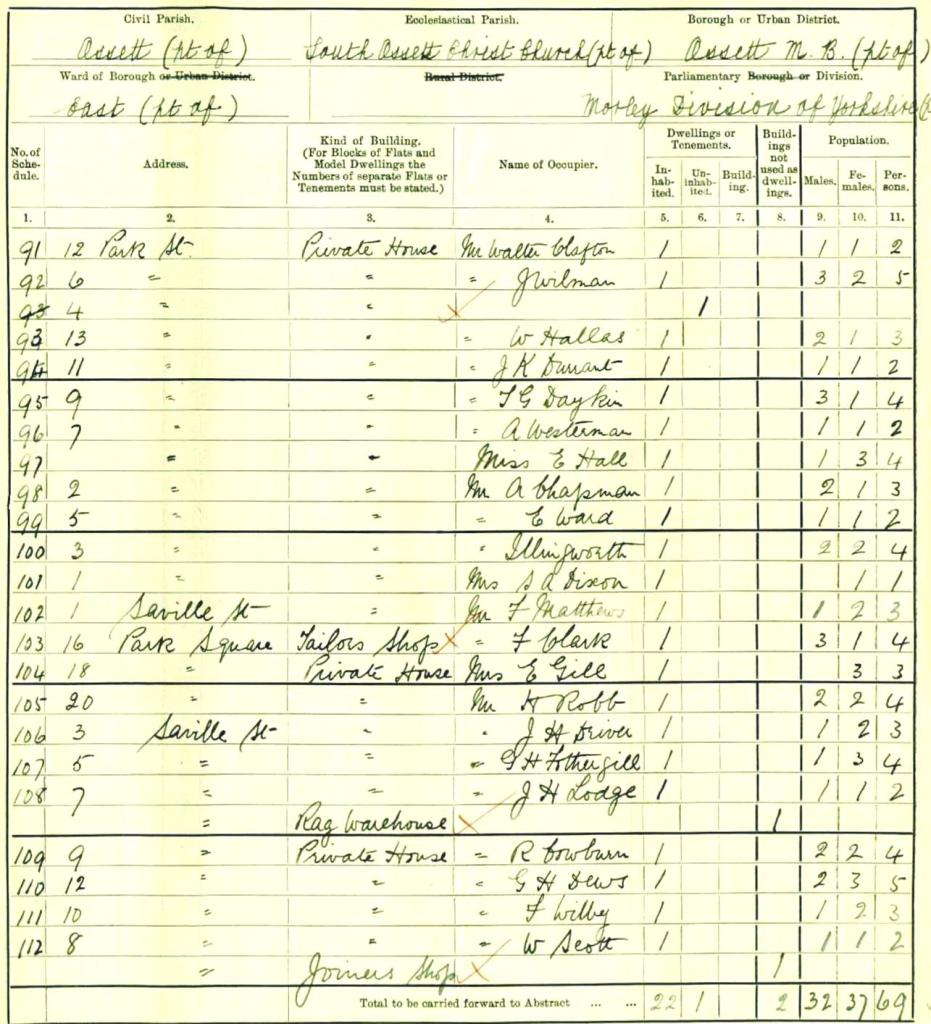 Civil Parish. Ecclesiastical Parish. Borough or Urban District.
Ossett (pt of) South Ossett Christ Church (pt of) Ossett M. B. (pt of)
Ward of Borough or Urban District. Rural District. Parliamentary Borough or Division.
East (pt of) Morley Division of Yorkshire
No. of Schedule. Address. Kind of Building. (For Blocks of Flats and Model Dwellings the Numbers of separate Flats or Tenements must be stated.) Name of Occupier. Dwellings or Tenements. Inhabited. Uninhabited. Building. Buildings not used as dwellings. Population. Males. Females. Persons.
1. 2. 3. 4. 5. 6. 7. 8. 9. 10. 11.
91 12 Park St. Private House Mr Walter Clafton 1 1 1 2
92 6 " " " J Wilman 1 3 2 5
93 4 " " 1
93 13 " " " W Hallas 1 2 1 3
94 11 " " " J K Durrant 1 1 1 2
95 9 " " " T G Daykin 1 3 1 4
96 7 " " " A Westerman 1 1 1 2
97 " " Miss E Hall 1 1 3 4
98 2 " " Mr A Chapman 1 2 1 3
99 5 " " " E Ward 1 1 1 2
100 3 " " " Illingworth 1 2 2 4
101 1 " " Mrs S A Dixon 1 1 1
102 1 Saville St " Mr F Matthews 1 1 2 3
103 16 Park Square Tailors Shop " F Clark 1 3 1 4
104 18 " Private House Mrs E Gill 1 3 3
105 20 " " Mr H Robb 1 2 2 4
106 3 Saville St " " J H Driver 1 1 2 3
107 5 " " " G H Fothergill 1 1 3 4
108 7 " " " J H Lodge 1 1 1 2
" Rag Warehouse 1
109 9 " Private House " R Cowburn 1 2 2 4
110 12 " " " G H Dews 1 2 3 5
111 10 " " " F Wilby 1 1 2 3
112 8 " " " W Scott 1 1 1 2
" Joiners Shop 1
Total to be carried forward to Abstract ... ... 22 1 2 32 37 69